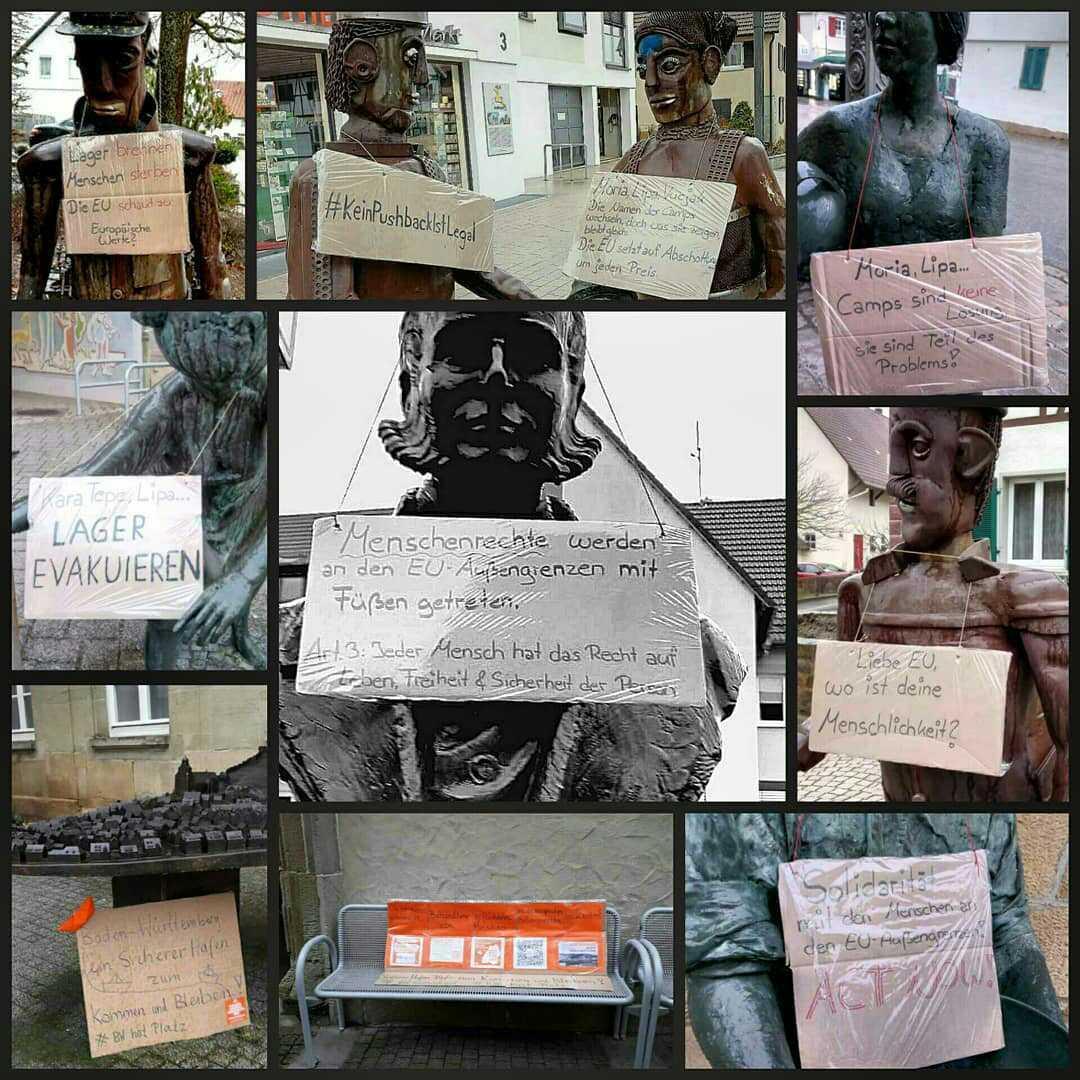 Lager brennen
Menschen sterben
Die EU schaut zu:
Europäische
Werte?
3
4
#KeinPushbackIstLegal
Moria, Lipa, Vucjak
Die Namen der Camps
wechseln, doch was sie zeigen
bleibt gleich:
Die EU setzt auf Abschottung
um jeden Preis
Moria, Lipa...
Camps sind keine
Lösung,
sie sind Teil des
Problems!
Kara Tepe, Lipa...
LAGER
EVAKUIEREN
Menschenrechte werden
an den EU-Außengrenzen mit
Füßen getreten.
Art 3: Jeder Mensch hat das Recht auf
Leben, Freiheit & Sicherheit der Person
Liebe EU,
wo ist deine
Menschlichkeit?
Baden-Württemberg
Ein Sicherer Hafen
zum
Kommen und Bleiben
# BW hat Platz
Solidarität
mit den Menschen an
den EU-Außengrenzen!
ACT NOW!